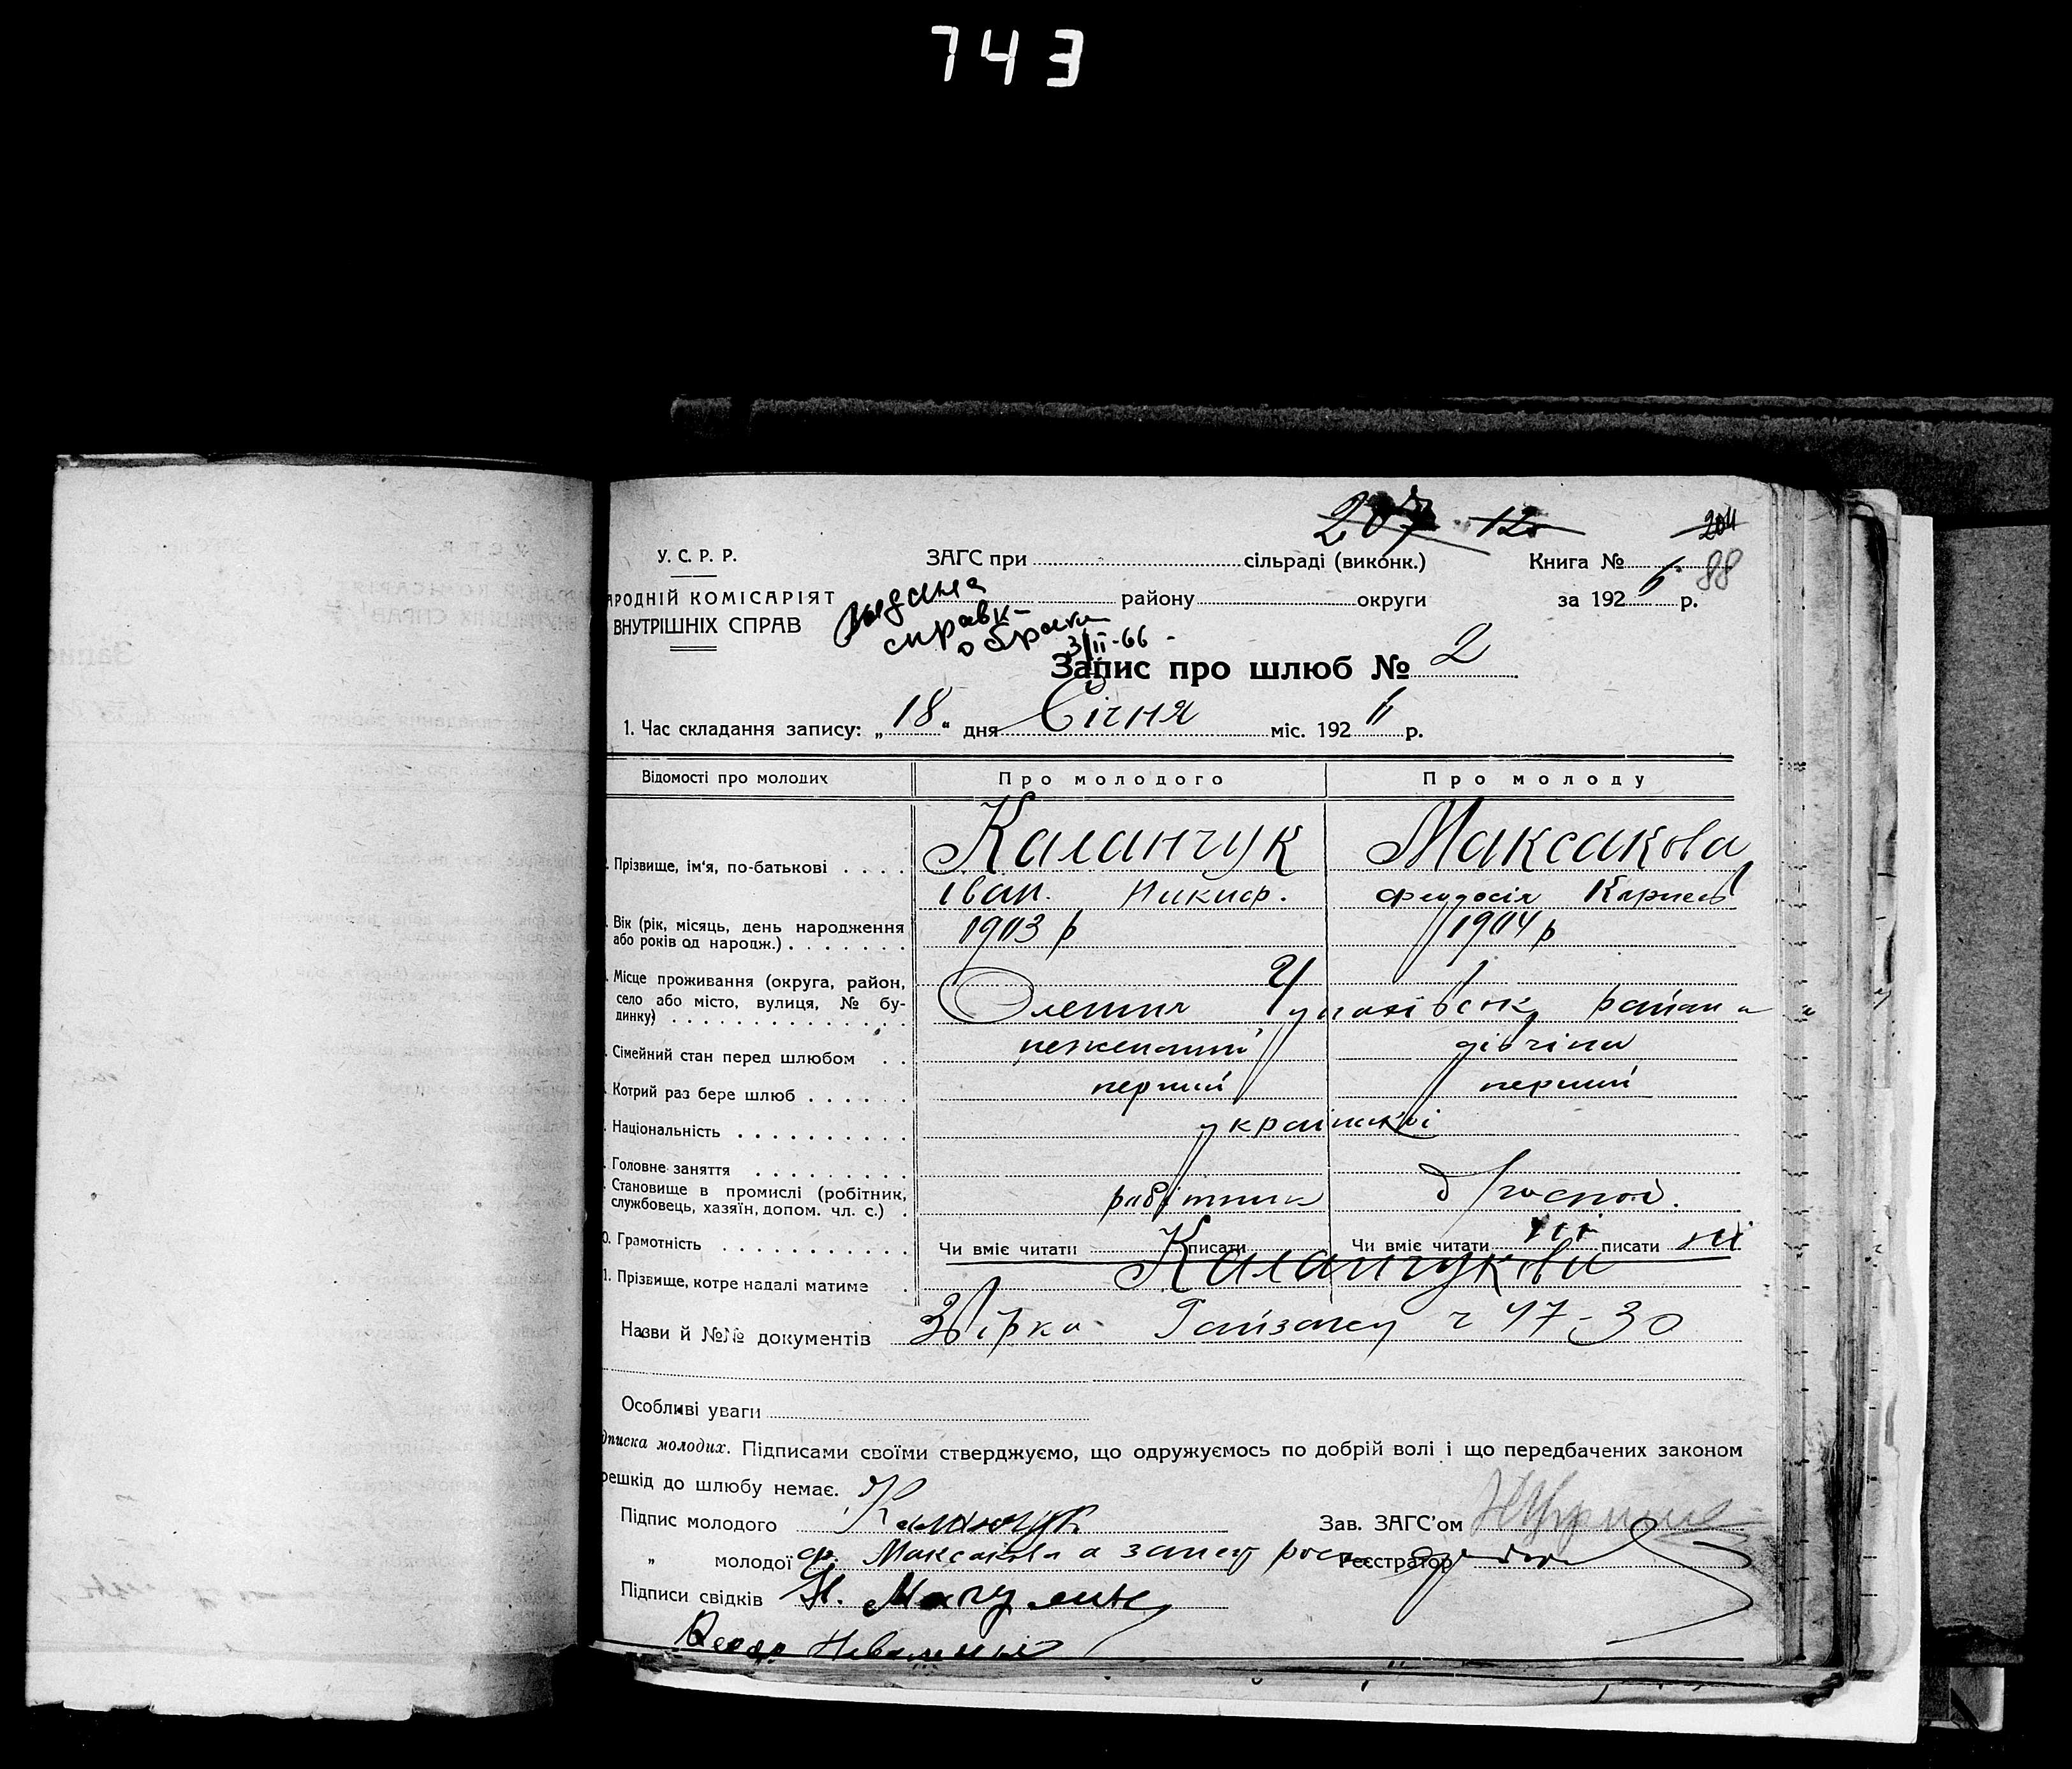 743
207 12 204
У. С. Р. Р. ЗАГС при сільраді (виконк.) Книга № 88
АРОДНІЙ КОМІСАРІЯТ району округи за 192 6 р.
ВНУТРІШНІХ СПРАВ
выдана
справк-
о браки
3/II-66-
Запис про шлюб № 2
1. Час складання запису: „ 18 “ дня Січня міс. 192 6 р.
Відомості про молодих Про молодого Про молоду
Прізвище, ім'я, по-батькові . . . . Каланчук Максакова
Іван. Никиф. Феодосія Карпов
Вік (рік, місяць, день народження 1903 р 1904 р
або років од народж.) . . . . . . .
Місце проживання (округа, район,
село або місто, вулиця, № бу-
динку) . . . . . . . . . . . . . району
Сімейний стан перед шлюбом . . неженатий дівчина
Котрий раз бере шлюб . . . . . . перший перший
Національність . . . . . . . . . . українські
Головне заняття . . . . . . . .
Становище в промислі (робітник,
службовець, хазяїн, допом. чл. с.) . работник д/господ.
0. Грамотність . . . . . . . . . . . Чи вміє читати писати Чи вміє читати ні писати ні
1. Прізвище, котре надалі матиме . Каланчукови
Назви й №№ документів Збірка ч 47-30
Особливі уваги
дписка молодих. Підписами своїми стверджуємо, що одружуємось по добрій волі і що передбачених законом
решкід до шлюбу немає.
Підпис молодого Каланчук Зав. ЗАГС'ом
„ молодої Ф. Максакова а за неї Реєстратор
Підписи свідків